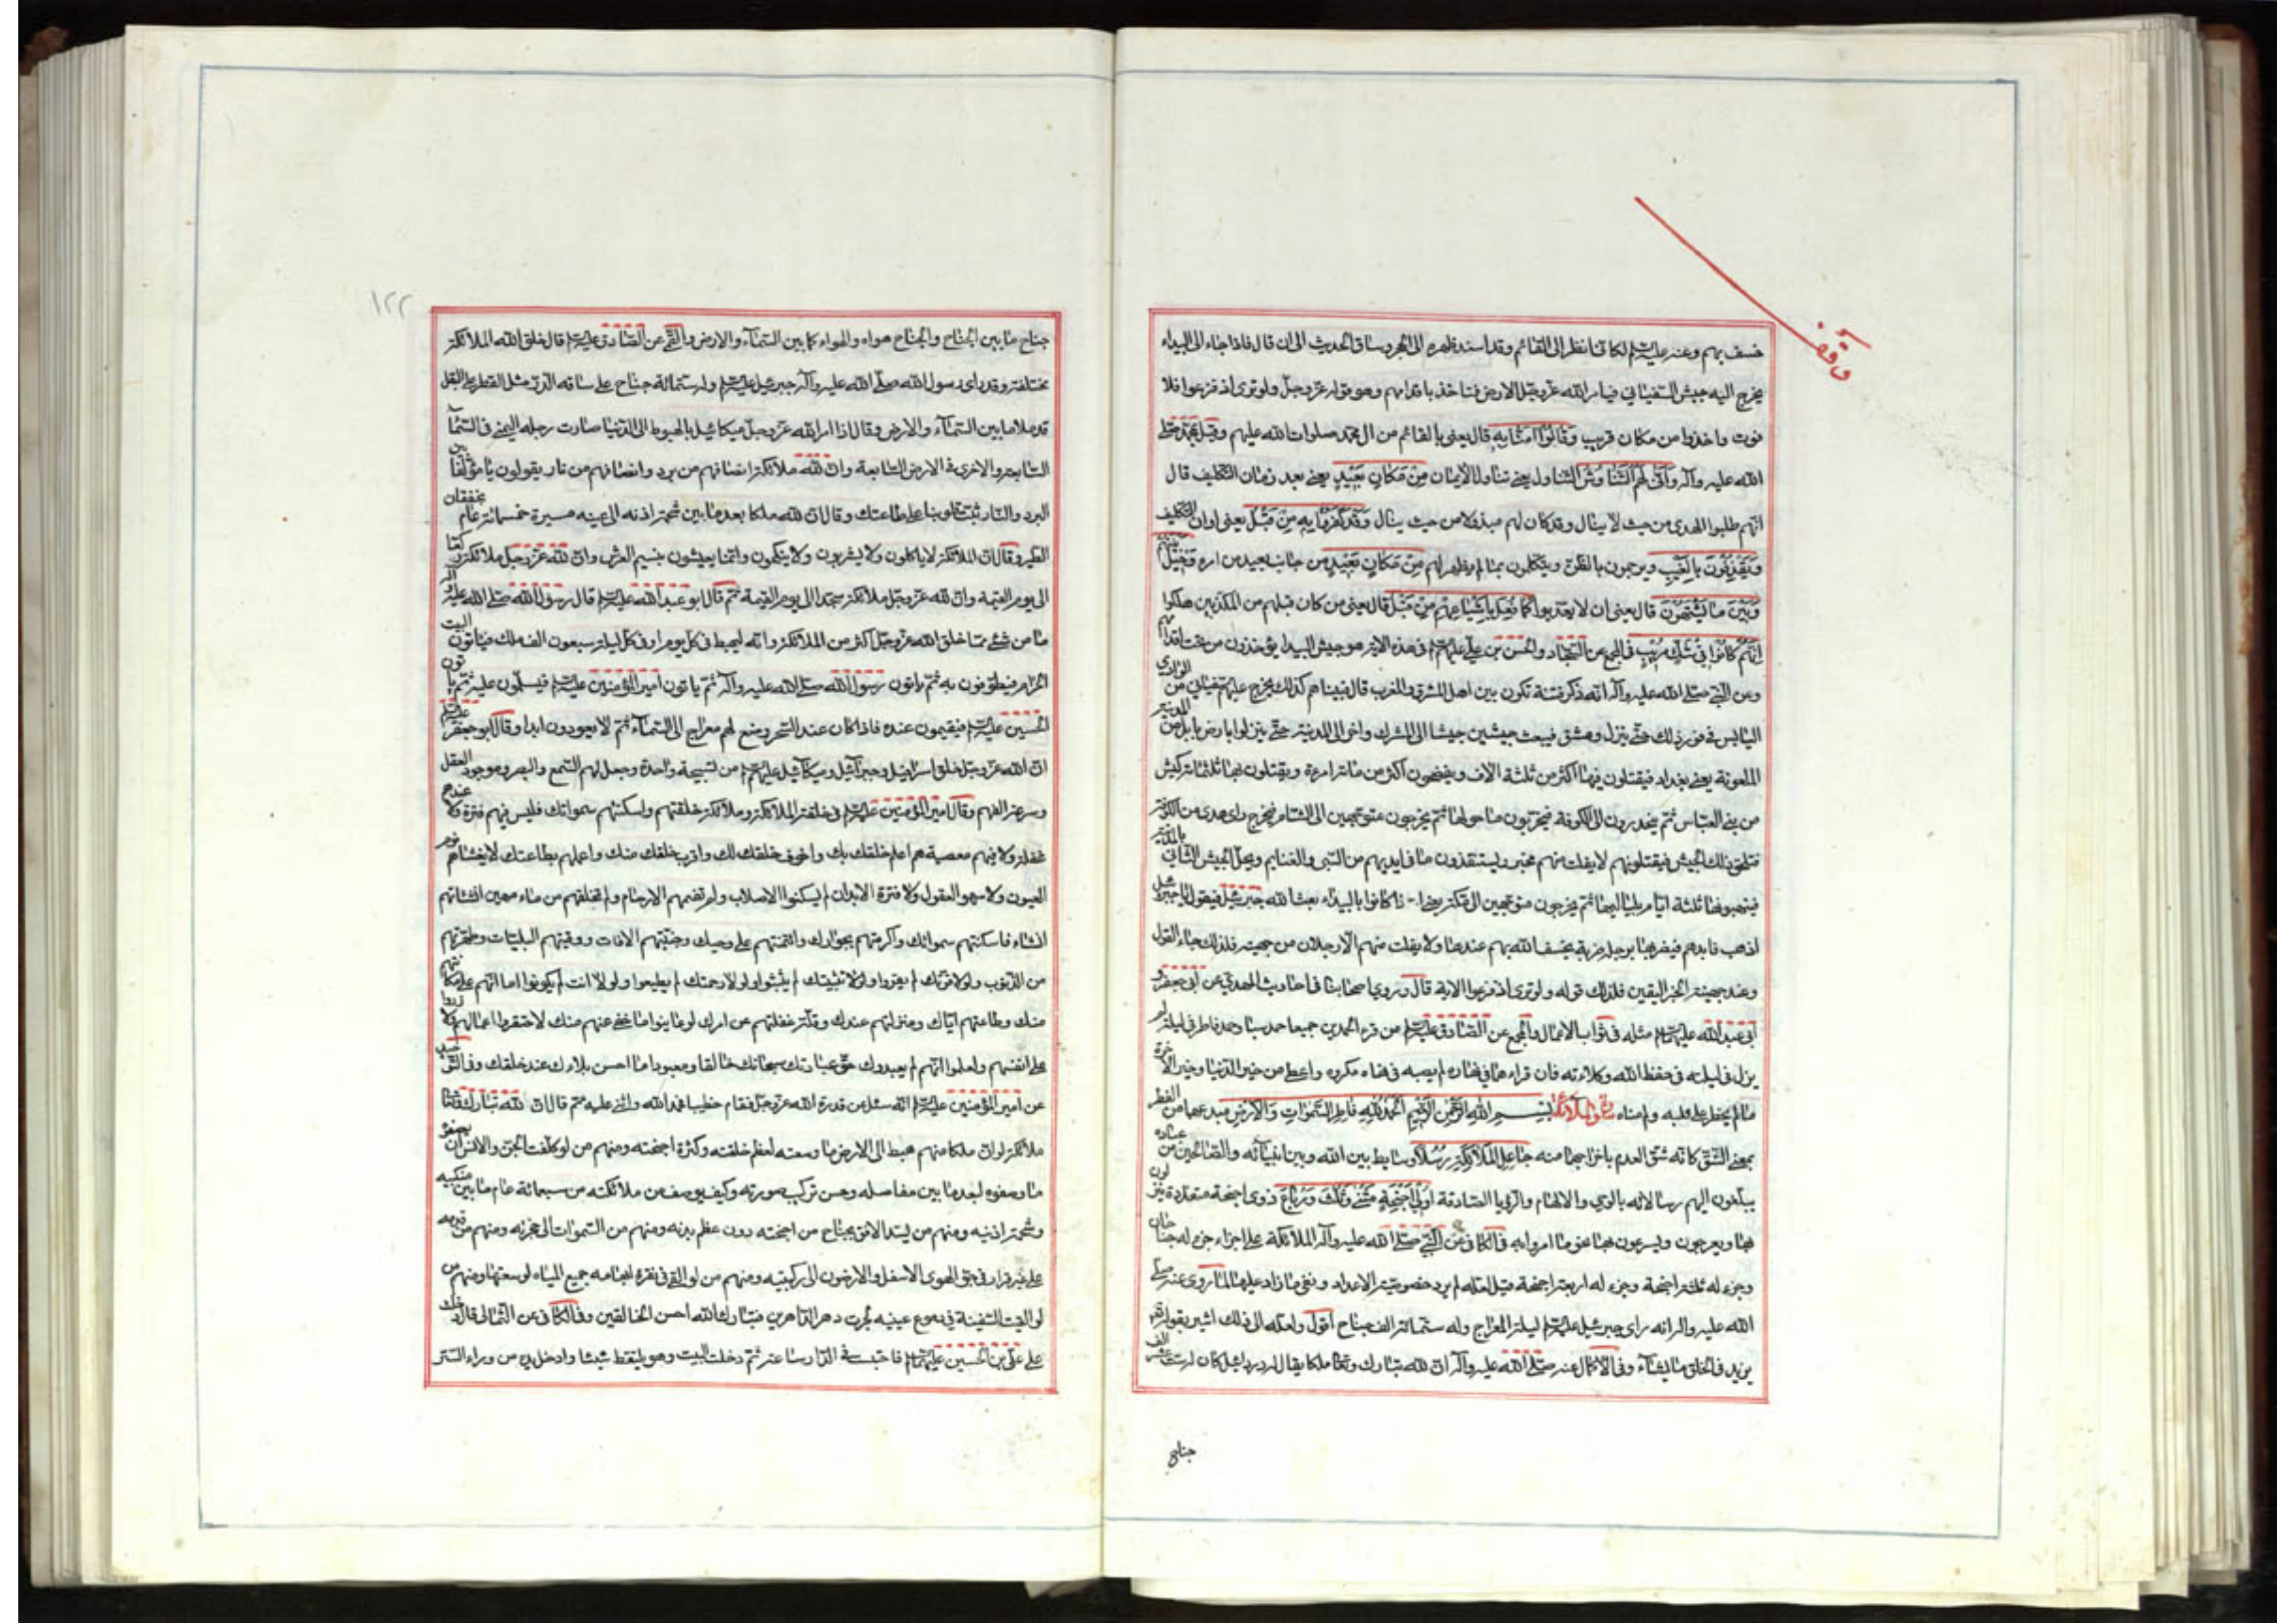 وقف
خسف بهم وعنه عليه السلام لكانّي انظر الى القائم وقد اسند ظهره الى الحجر وساق الحديث الى ان قال فاذا جاء الى البيداء
يخرج اليه جيش السفياني فيامر الله عزّ وجلّ الارض فتاخذ باقدامهم وهو قوله عزّ وجلّ ولو ترى اذ فزعوا فلا
فوت واخذوا من مكان قريب وَقَالُوا آمَنَّا بِهِ قال يعنى بالقائم من ال محمّد صلوات الله عليهم وقيل بمحمّد صلّى
الله عليه وآله وَاَنّى لَهُمُ التَّنَاوُشُ التناول يعنى تناول الايمان مِنْ مَكَانٍ بَعِيدٍ يعنى بعد زمان التكليف قال
انّهم طلبوا الهدى من حيث لا ينال وقد كان لهم مبذولا من حيث ينال وَقَدْ كَفَرُوا بِهِ مِنْ قَبْلُ يعنى اوان التكليف
وَيَقْذِفُونَ بِالْغَيْبِ ويرجمون بالظنّ ويتكلّمون بما لم يظهر لهم مِنْ مَكَانٍ بَعِيدٍ من جانب بعيد من امره وَحِيلَ بَيْنَهُمْ
وَبَيْنَ مَا يَشْتَهُونَ قال يعنى ان لا يعذبوا كَمَا فُعِلَ بِاَشْيَاعِهِمْ مِنْ قَبْلُ قال يعنى من كان قبلهم من المكذّبين هلكوا
اِنَّهُمْ كَانُوا فِي شَكٍّ مُرِيبٍ في المجمع عن السجّاد والحسن بن علي عليهم السلام في هذه الاية هو جيش البيداء يؤخذون من تحت اقدامهم
وعن النبيّ صلّى الله عليه وآله انّه ذكر فتنة تكون بين اهل المشرق والمغرب قال فبيناهم كذلك يخرج عليهم السفياني من الوادي
اليابس في فور ذلك حتّى ينزل دمشق فيبعث جيشين جيشا الى المشرق واخر الى المدينة حتّى ينزلوا بارض بابل من المدينة
الملعونة يعنى بغداد فيقتلون فيها اكثر من ثلثة الاف ويفضحون اكثر من مائة امرءة ويقتلون بها ثلثمائة كبش
من بنى العبّاس ثمّ ينحدرون الى الكوفة فيخربون ما حولها ثمّ يخرجون متوجّهين الى الشام فيخرج راية هدى من الكوفة
فتلحق ذلك الجيش فيقتلونهم لا يفلت منهم مخبر ويستنقذون ما في ايديهم من السبى والغنايم ويحلّ الجيش الثاني بالمدينة
فينهبونها ثلثة ايّام بلياليها ثمّ يخرجون متوجّهين الى مكّة حتى اذا كانوا بالبيداء بعث الله جبرئيل فيقول يا جبرئيل
اذهب فابدهم فيضربها برجله ضربة يخسف الله بهم عندها ولا يفلت منهم الّا رجلان من جهينة فلذلك جاء القول
وعند جهينة الخبر اليقين فلذلك قوله ولو ترى اذ فزعوا الاية قال وروى اصحابنا في احاديث المهدي عن ابى جعفر و
ابى عبد الله عليهما السلام مثله في ثواب الاعمال والمجمع عن الصادق عليه السلام من قرء الحمدين جميعا حمد سبا وحمد فاطر في ليلة لم
يزل في ليلته في حفظ الله وكلائته فان قراءهما في نهاره لم يصبه في نهاره مكروه واعطى من خير الدنيا وخير الاخرة
ما لم يخطر على قلبه ولم مناه سورة الملائكة بِسْمِ اللهِ الرَّحْمنِ الرَّحِيمِ اَلْحَمْدُ لِلّهِ فَاطِرِ السَّمواتِ وَالْاَرْضِ مبدعهما من الفطر
بمعنى الشقّ كانّه شقّ العدم باخراجهما منه جَاعِلِ الْمَلَائِكَةِ رُسُلًا وسايط بين الله وبين انبيآئه والصالحين من عباده
يبلّغون اليهم رسالاته بالوحى والالهام والرؤيا الصادقة اُولِي اَجْنِحَةٍ مَثْنى وَثُلثَ وَرُبَاعَ ذوى اجنحة متعدّدة ينزلون
بها ويعرجون ويسرعون بها نحو ما امروا به في الكافي عن النبيّ صلّى الله عليه وآله الملائكة على اجزاء جزء له جناحان
وجزء له ثلثة اجنحة وجزء له اربعة اجنحة قيل لعلّه لم يرد خصوصيّة الاعداد ونفى ما زاد عليها لما روى عنه صلّى
الله عليه وآله انه راى جبرئيل عليه السلام ليلة المعراج وله ستّمائة الف جناح اقول ولعلّه الى ذلك اشير بقوله تعالى
يزيد في الخلق ما يشآء وفي الاكمال عنه صلّى الله عليه وآله انّ لله تبارك وتعالى ملكا يقال له دردائيل كان له ستة عشر الف
جناح
١٢٢
جناح ما بين الجناح والجناح هواء والهواء كما بين السمآء والارض والقمّي عن الصادق عليه السلام قال خلق الله الملائكة
مختلفة وقد راى رسول الله صلّى الله عليه وآله جبرئيل عليه السلام وله ستّمائة جناح على ساقه الدرّ مثل القطر على البقل
قد ملأ ما بين السمآء والارض وقال اذا امر الله عزّ وجلّ ميكائيل بالهبوط الى الدنيا صارت رجله اليمنى في السمآء
السابعة والاخرى في الارض السابعة وانّ لله ملائكة انصافهم من برد وانصافهم من نار يقولون يا مؤلّفا بين
البرد والنار ثبّت قلوبنا على طاعتك وقال انّ لله ملكا بعد ما بين شحمة اذنه الى عينه مسيرة خمسمائة عام بخفقان
الطير وقال انّ الملائكة لا ياكلون ولا يشربون ولا ينكحون وانّما يعيشون بنسيم العرش وانّ لله عزّ وجلّ ملائكة ركّعا
الى يوم القيمة وانّ لله عزّ وجلّ ملائكة سجّدا الى يوم القيمة ثمّ قال ابو عبد الله عليه السلام قال رسول الله صلّى الله عليه وآله
ما من شئ ممّا خلق الله عزّ وجلّ اكثر من الملائكة وانّه ليهبط في كلّ يوم او في كلّ ليلة سبعون الف ملك فياتون البيت
الحرام فيطوفون به ثمّ ياتون رسول الله صلّى الله عليه وآله ثمّ ياتون امير المؤمنين عليه السلام فيسلّمون عليه ثمّ ياتون
الحسين عليه السلام فيقيمون عنده فاذا كان عند السحر وضع لهم معراج الى السمآء ثمّ لا يعودون ابدا وقال ابو جعفر عليه السلام
انّ الله عزّ وجلّ خلق اسرافيل وجبرآئيل وميكآئيل عليهم السلام من تسبيحة واحدة وجعل لهم السمع والبصر وموجود العقل
وسرعة الفهم وقال امير المؤمنين عليه السلام في خلقة الملائكة وملائكة خلقتهم واسكنتهم سمواتك فليس فيهم فترة ولا عندهم
غفلة ولا فيهم معصية هم اعلم خلقك بك واخوف خلقك لك واقرب خلقك منك واعملهم بطاعتك لا يغشاهم نوم
العيون ولا سهو العقول ولا فترة الابدان لم يسكنوا الاصلاب ولم تضمهم الارحام ولم تخلقهم من ماء مهين انشاتهم
انشاء فاسكنتهم سمواتك واكرمتهم بجوارك وائتمنتهم على وحيك وجنّبتهم الافات ووقيتهم البليّات وطهّرتهم
من الذنوب ولولا قوّتك لم يقووا ولولا تثبيتك لم يثبتوا ولولا رحمتك لم يطيعوا ولولا انت لم يكونوا اما انّهم على مكانتهم
منك وطاعتهم ايّاك ومنزلتهم عندك وقلّة غفلتهم عن امرك لو عاينوا ما خفى عنهم منك لاحتقروا اعمالهم ولازروا
على انفسهم ولعلموا انّهم لم يعبدوك حقّ عبادتك سبحانك خالقا ومعبودا ما احسن بلاءك عند خلقك وفي التوحيد
عن امير المؤمنين عليه السلام انّه سئل عن قدرة الله عزّ وجلّ فقام خطيبا فحمد الله واثنى عليه ثم قال انّ لله تبارك وتعالى
ملائكة لو انّ ملكا منهم هبط الى الارض ما وسعته لعظم خلقته وكثرة اجنحته ومنهم من لو كلّفت الجنّ والانس ان يصفوه
ما وصفوه لبعد ما بين مفاصله وحسن تركيب صورته وكيف يوصف من ملائكته من سبعمائة عام ما بين منكبيه
وشحمة اذنيه ومنهم من يسدّ الافق بجناح من اجنحته دون عظم بدنه ومنهم من السموات الى حجزته ومنهم من قدمه
على غير قرار في جوّ الهوى الاسفل والارضون الى ركبتيه ومنهم من لو القى في نقرة ابهامه جميع المياه لوسعتها ومنهم من
لو القيت السفينة في دموع عينيه لجرت دهر الداهرين فتبارك الله احسن الخالقين وفي الكافي عن الثمالى قال دخلت
على علّي بن الحسين عليهما السلام فاحتبست في الدار ساعة ثمّ دخلت البيت وهو يلتقط شيئا وادخل يده من وراء الستر